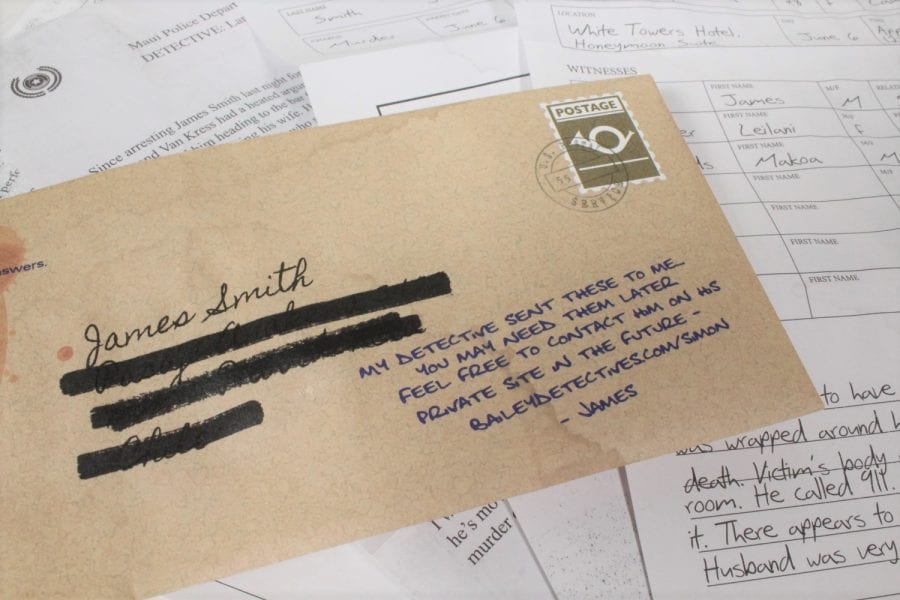 Maui Police Depart
DETECTIVE: Lar
Since arresting James Smith last night for
and Van Kress had a heated argu
him heading to the bar
ng his wife. H
who
perfe
LAST NAME
Smith
June 6
CHARGE
Murder
June 6
LOCATION
White Towers Hotel,
Honeymoon Suite
DAY
June 6
WITNESSES
FIRST NAME
M/F
RELATI
James
M
S
FIRST NAME
Leilani
F
FIRST NAME
Makoa
M
M/F
FIRST NAME
FIRST NAME
FIRST NAME
POSTAGE
U.S.
SERVICE
nswers.
James Smith
Ohio
MY DETECTIVE SENT THESE TO ME.
YOU MAY NEED THEM LATER
FEEL FREE TO CONTACT HIM ON HIS
PRIVATE SITE IN THE FUTURE -
BAILEYDETECTIVES.COM/SIMON
- JAMES
he's mo
murder
to have
was wrapped around h
death. Victim's body
room. He called 911.
it. There appears to
Husband was very